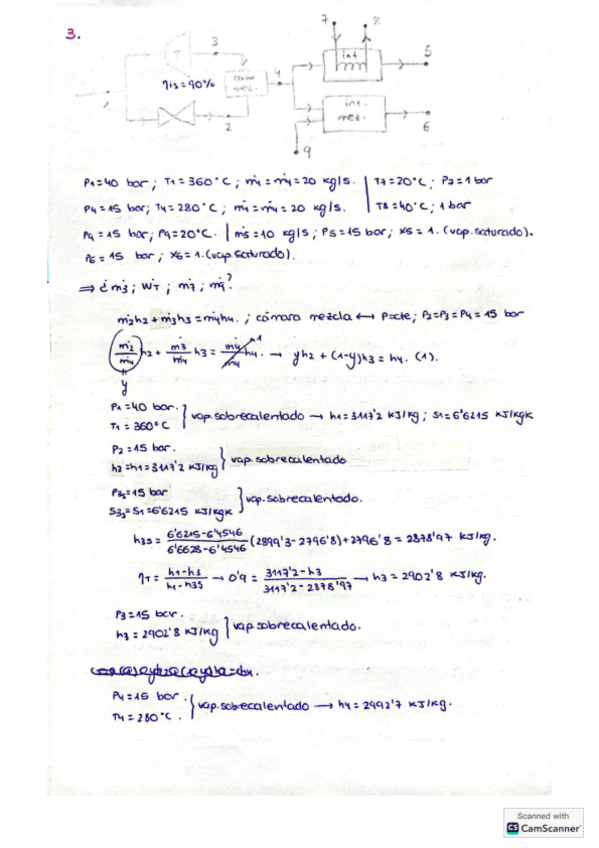 3.
3
T
ηis = 90%
cam
mez.
1
2
4
7
8
int
5
int.
mez.
6
9
P1=40 bar ; T1=360°C ; ṁ1=ṁ4=20 kg/s. | T7=20°C ; P7=1 bar
P4=15 bar; T4=280°C ; ṁ1=ṁ4=20 kg/s. | T8=40°C ; 1 bar
P9=15 bar; P9=20°C. | ṁ5=10 kg/s ; P5=15 bar; x5=1. (vap. saturado).
P6=15 bar; x6=1. (vap saturado).
⇒ ¿ṁ3 ; WT ; ṁ7 ; ṁ9?
ṁ2h2+ṁ3h3=ṁ4h4. ; cámara mezcla ↔ P=cte; P2=P3=P4=15 bar
ṁ2/ṁ4 h2 + ṁ3/ṁ4 h3 = ṁ4/ṁ4 h4. → yh2 + (1-y)h3 = h4. (1).
1
y
P1=40 bar.
T1=360°C } vap. sobrecalentado → h1=3117'2 kJ/kg ; s1=6'6215 kJ/kgK
P2=15 bar.
h2=h1=3117'2 kJ/kg } vap. sobrecalentado
P3s=15 bar
S3s=S1=6'6215 kJ/kgK } vap. sobrecalentado.
h3s = 6'6215-6'4546 / 6'6628-6'4546 (2899'3-2796'8)+2796'8 = 2878'97 kJ/kg.
ηT = h1-h3 / h1-h3s → 0'9 = 3117'2-h3 / 3117'2-2878'97 → h3=2902'8 kJ/kg.
P3=15 bar.
h3=2902'8 kJ/kg } vap. sobrecalentado.
P4=15 bar.
T4=280°C. } vap. sobrecalentado → h4=2992'7 kJ/kg.
Scanned with
CS CamScanner